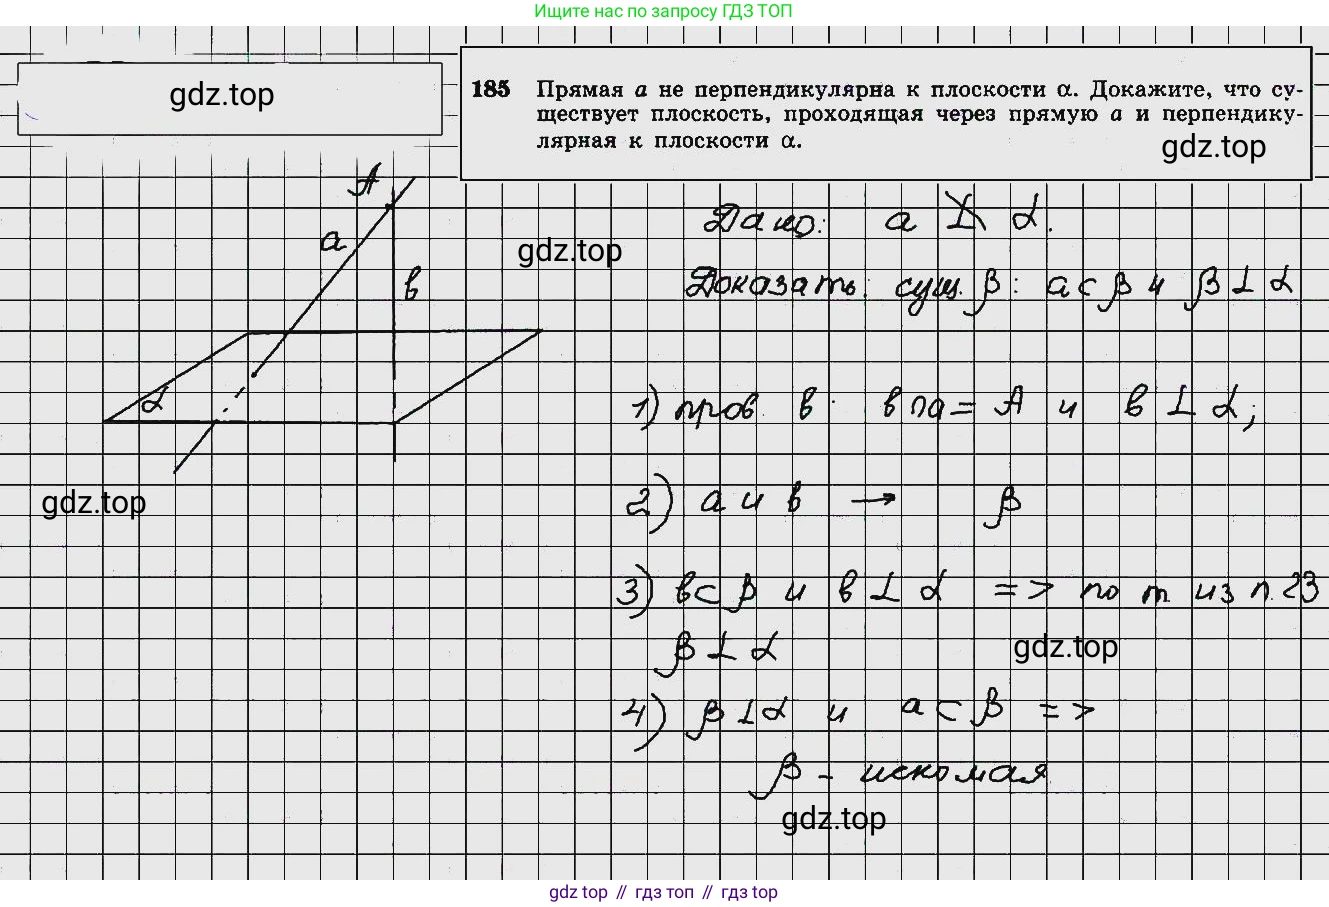 Ищите нас по запросу ГДЗ ТОП
gdz.top
185 Прямая a не перпендикулярна к плоскости α. Докажите, что су-
ществует плоскость, проходящая через прямую a и перпендику-
лярная к плоскости α.
gdz.top
A
a
в
α
gdz.top
gdz.top
Дано: a ⊥̸ α.
Доказать: сущ. β: a ⊂ β и β ⊥ α
1) пров. в: в ∩ a = A и в ⊥ α;
2) a и в → β
3) в ⊂ β и в ⊥ α => по т из п. 23
β ⊥ α
gdz.top
4) β ⊥ α и a ⊂ β =>
β - искомая
gdz.top
gdz top // гдз топ // gdz top